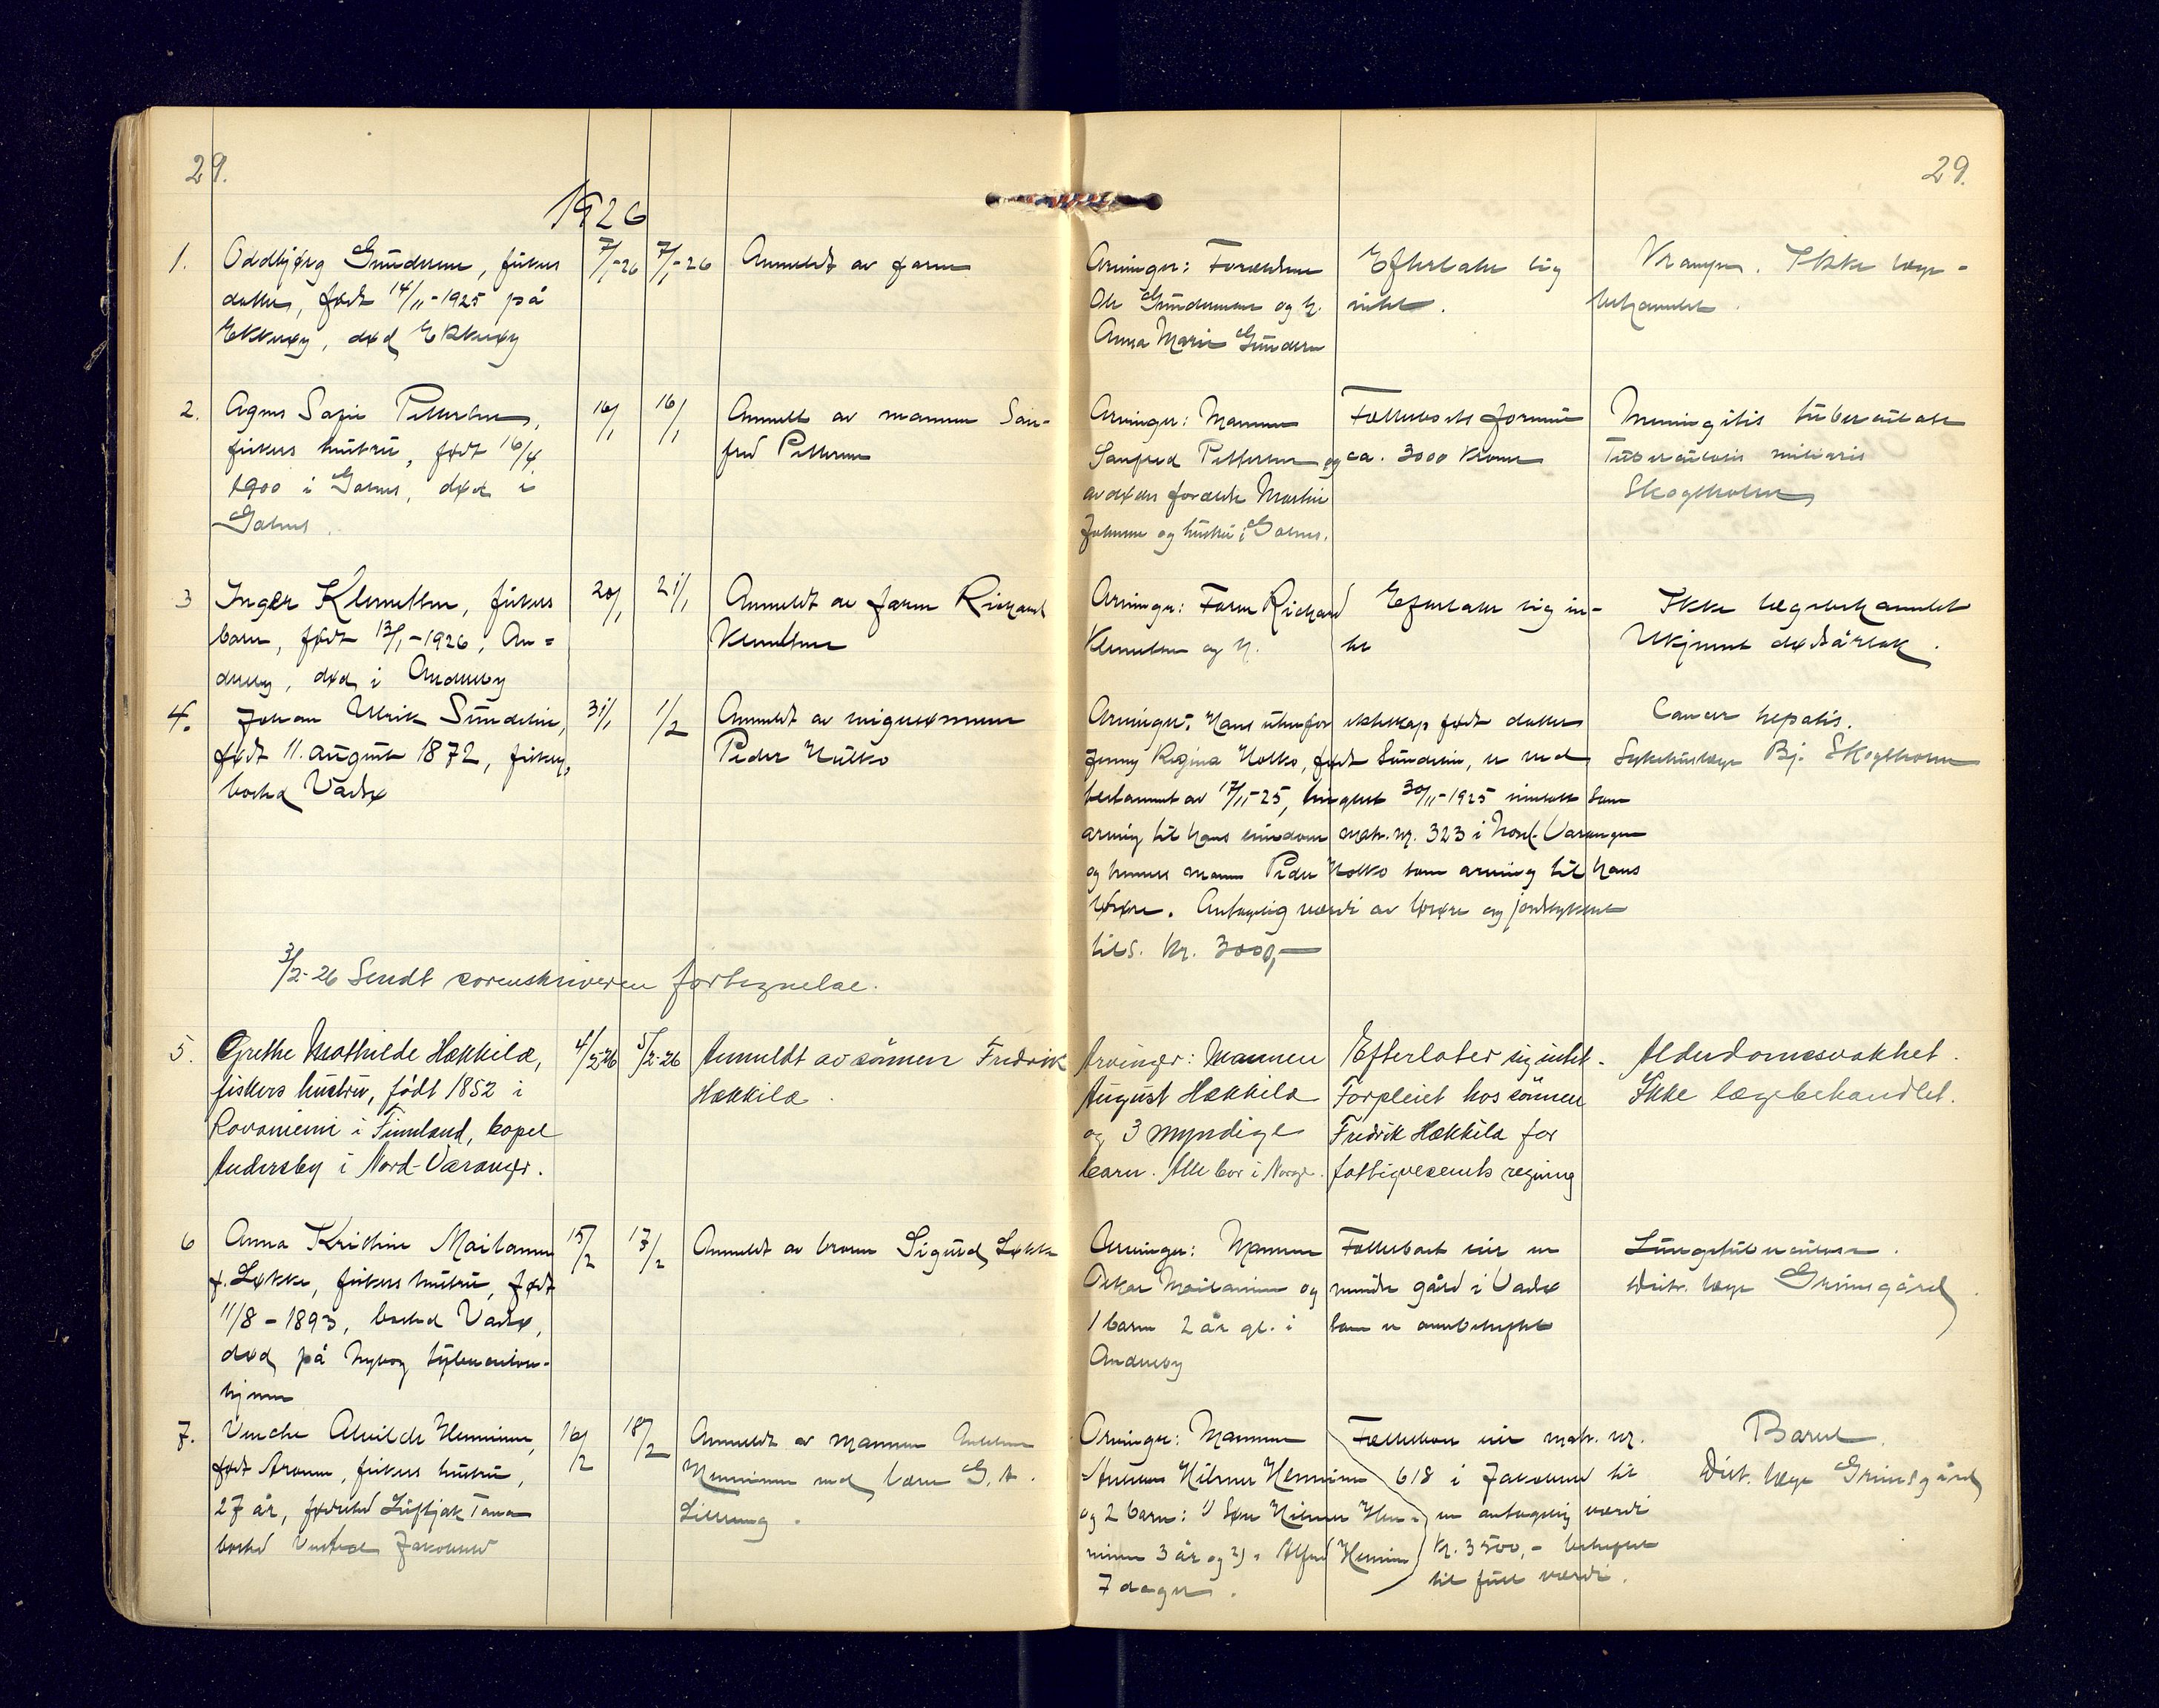 29.
29.
1926
1.
Oddbjørg Gundersen, fiskers
datter, født 14/11-1925 på
Ekkerøy, død Ekkerøy
7/1-26
7/1-26
Anmeldt av faren
Arvinger: Forældrene
Ole Gundersen og h.
Anna Marie Gundersen
Efterlater sig
intet.
Kramper. Ikke læge-
behandlet.
2.
Agnes Sofie Pettersen,
fiskers hustru, født 16/4
1900 i Golnes, død i
Golnes.
16/1
16/1
Anmeldt av mannen San-
fred Pettersen
Arvinger: Mannen
Sanfred Pettersen og
avdødes forældre Martin
Johnsen og hustru i Golnes.
Fællesboets formue
ca. 3000 kroner
Meningitis tuberculosae
Tuberculosis miliaris
Skogholm
3
Inger Klemetsen, fiskers
barn, født 13/1-1926, An=
dersby, død i Andersby
20/1
21/1
Anmeldt av faren Richard
Klemetsen
Arvinger: Faren Richard
Klemetsen og h.
Efterlater sig in-
tet
Ikke lægebehandlet
Ukjennt dødsårsak.
4.
Johan Ulrik Sundelin,
født 11. august 1872, fisker,
bosted Vadsø
31/1
1/2
Anmeldt av svigersønnen
Peder Hulko
Arvinger: Hans utenfor ekteskap født datter
Jenny Regina Holko, født Sundelin, er ved
testament av 17/11-25, tinglest 30/11-1925 innsatt som
arving til hans eiendom matr. nr. 323 i Nord-Varanger
og hennes mann Peder Holko som arving til hans
løsøre. Antagelig værdi av løsøre og jordstykket
tils. kr. 3000,-
Cancer hepatis.
Sykehuslæge Bj. Skogholm
3/2-26 Sendt sorenskriveren fortegnelse.
5.
Grethe Mathilde Hækkilæ,
fiskers hustru, født 1852 i
Rovaniemi i Finnland, bopel
Andersby i Nord-Varanger.
4/2-26
5/2-26
Anmeldt av sönnen Fredrik
Hækkilæ.
Arvinger: Mannen
August Hækkilæ
og 3 myndige
barn. Alle bor i Norge.
Efterlater sig intet.
Forpleiet hos sönnen
Fredrik Hækkilæ for
fattigvesenets regning
Alderdomssvakhet.
Ikke lægebehandlet.
6
Anna Kristine Mailanen
f. Løkke, fiskers hustru, født
11/8-1893, bosted Vadsø,
død på Nyborg tuberculose-
hjem
15/2
17/2
Anmeldt av broren Sigurd Løkke
Arvinger: Mannen
Oskar Mailanen og
1 barn 2 år gl. i
Andersby
Fællesboet eier en
mindre gård i Vadsø
som er overbeheftet
Lungetuberculose.
Distr. læge Grimsgård.
7.
Venche Alvilde Henninen,
født Aronsen, fiskers hustru,
27 år, fødested Luftjok Tana
bosted Vestre Jakobselv
16/2
18/2
Anmeldt av mannen
Henninen ved lærer G. A.
Lilleeng.
Arvinger: Mannen
Hilmer Henninen
og 2 barn: 1) Søn Hilmer Hen-
ninen 3 år og 2) " Alfred Henninen
7 dager.
Fællesboet eier matr. nr.
618 i Jakobselv til
en antagelig værdi
kr. 3500,- beheftet
til full værdi.
Barsel.
Distr. læge Grimsgård